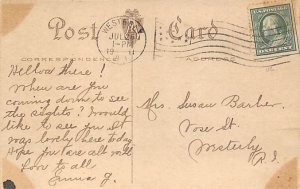 Post Card
WESTERLY
JUL 26
1-PM
19 11
R.I.
U.S. POSTAGE
ONE CENT
CORRESPONDENCE
ADDRESS
Hello there!
When are you
coming down to see
the sights? Would
like to see you. It
was lovely here today
Hope you are all well
Love to all
Emma G.
Mrs. Susan Barber.
Vose St.
Westerly
R.I.